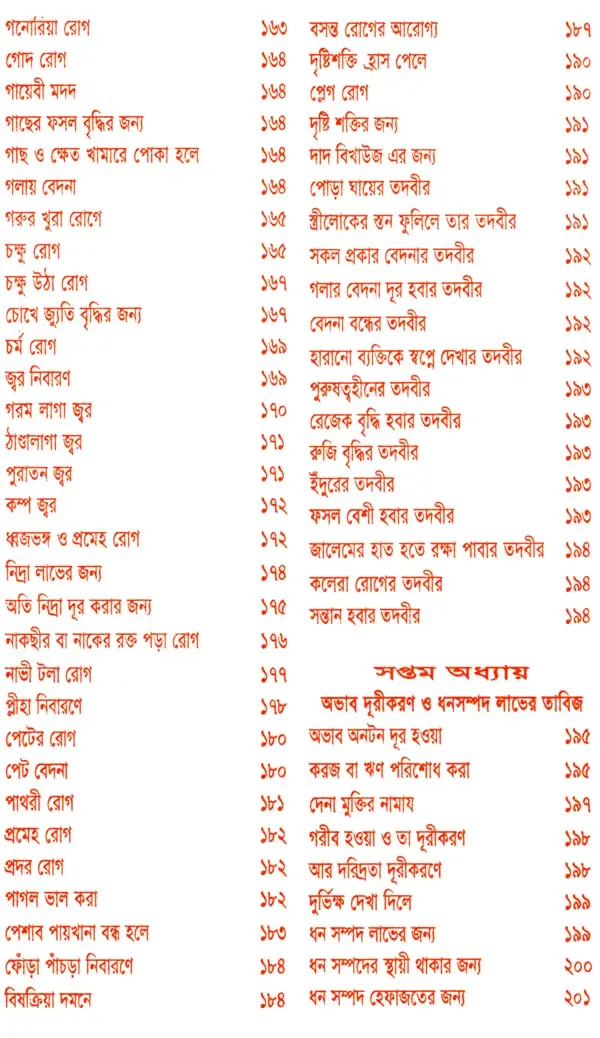 গনোরিয়া রোগ ১৬৩
গোদ রোগ ১৬৪
গায়েবী মদদ ১৬৪
গাছের ফসল বৃদ্ধির জন্য ১৬৪
গাছ ও ক্ষেত খামারে পোকা হলে ১৬৪
গলায় বেদনা ১৬৪
গরুর খুরা রোগে ১৬৫
চক্ষু রোগ ১৬৫
চক্ষু উঠা রোগ ১৬৭
চোখে জ্যুতি বৃদ্ধির জন্য ১৬৭
চর্ম রোগ ১৬৯
জ্বর নিবারণ ১৬৯
গরম লাগা জ্বর ১৭০
ঠাণ্ডালাগা জ্বর ১৭১
পুরাতন জ্বর ১৭১
কম্প জ্বর ১৭২
ধ্বজভঙ্গ ও প্রমেহ রোগ ১৭২
নিদ্রা লাভের জন্য ১৭৪
অতি নিদ্রা দূর করার জন্য ১৭৫
নাকছীর বা নাকের রক্ত পড়া রোগ ১৭৬
নাভী টলা রোগ ১৭৭
প্লীহা নিবারণে ১৭৮
পেটের রোগ ১৮০
পেট বেদনা ১৮০
পাথরী রোগ ১৮১
প্রমেহ রোগ ১৮২
প্রদর রোগ ১৮২
পাগল ভাল করা ১৮২
পেশাব পায়খানা বন্ধ হলে ১৮৩
ফোঁড়া পাঁচড়া নিবারণে ১৮৪
বিষক্রিয়া দমনে ১৮৪
বসন্ত রোগের আরোগ্য ১৮৭
দৃষ্টিশক্তি হ্রাস পেলে ১৯০
প্লেগ রোগ ১৯০
দৃষ্টি শক্তির জন্য ১৯১
দাদ বিখাউজ এর জন্য ১৯১
পোড়া ঘায়ের তদবীর ১৯১
স্ত্রীলোকের স্তন ফুলিলে তার তদবীর ১৯১
সকল প্রকার বেদনার তদবীর ১৯২
গলার বেদনা দূর হবার তদবীর ১৯২
বেদনা বন্ধের তদবীর ১৯২
হারানো ব্যক্তিকে স্বপ্নে দেখার তদবীর ১৯২
পুরুষত্বহীনের তদবীর ১৯৩
রেজেক বৃদ্ধি হবার তদবীর ১৯৩
রুজি বৃদ্ধির তদবীর ১৯৩
ইঁদুরের তদবীর ১৯৩
ফসল বেশী হবার তদবীর ১৯৩
জালেমের হাত হতে রক্ষা পাবার তদবীর ১৯৪
কলেরা রোগের তদবীর ১৯৪
সন্তান হবার তদবীর ১৯৪
সপ্তম অধ্যায়
অভাব দূরীকরণ ও ধনসম্পদ লাভের তাবিজ
অভাব অনটন দূর হওয়া ১৯৫
করজ বা ঋণ পরিশোধ করা ১৯৫
দেনা মুক্তির নামায ১৯৭
গরীব হওয়া ও তা দূরীকরণ ১৯৮
আর দরিদ্রতা দূরীকরণে ১৯৮
দুর্ভিক্ষ দেখা দিলে ১৯৯
ধন সম্পদ লাভের জন্য ১৯৯
ধন সম্পদের স্থায়ী থাকার জন্য ২০০
ধন সম্পদ হেফাজতের জন্য ২০১